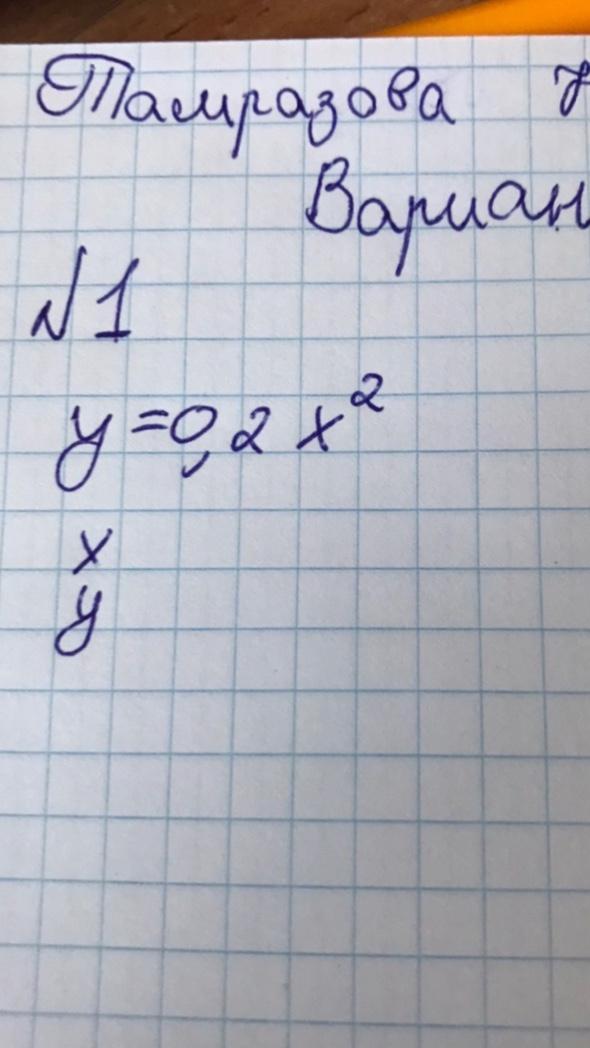 Тамразова
Вариан
№1
y = 0,2 x²
x
y